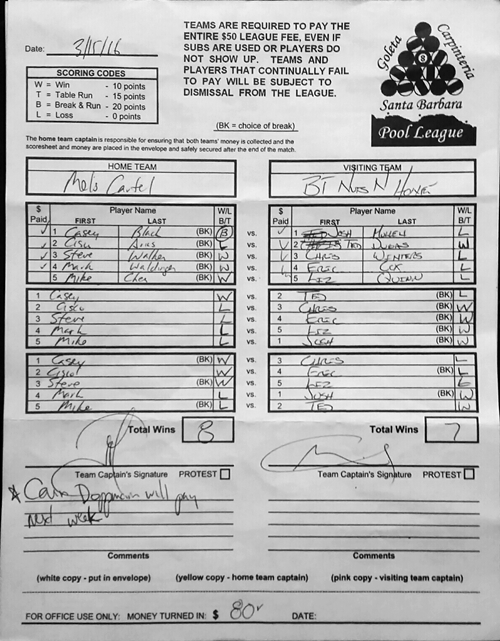 TEAMS ARE REQUIRED TO PAY THE
ENTIRE $50 LEAGUE FEE, EVEN IF
SUBS ARE USED OR PLAYERS DO
NOT SHOW UP. TEAMS AND
PLAYERS THAT CONTINUALLY FAIL
TO PAY WILL BE SUBJECT TO
DISMISSAL FROM THE LEAGUE.
Date: 3/15/16
SCORING CODES
W = Win - 10 points
T = Table Run - 15 points
B = Break & Run - 20 points
L = Loss - 0 points
Goleta
Carpinteria
8
Santa Barbara
Pool League
(BK = choice of break)
The home team captain is responsible for ensuring that both teams' money is collected and the
scoresheet and money are placed in the envelope and safely secured after the end of the match.
HOME TEAM VISITING TEAM
Mels Cartel BT Nuts N Honey
$ Paid Player Name FIRST LAST W/L B/T $ Paid Player Name FIRST LAST W/L B/T
1 Casey Black (BK) B vs. 1 JOSH L
2 Cisco Arias (BK) L vs. 2 TED W
3 Steve Walker (BK) W vs. 3 CHRIS WINTERS L
4 Mark (BK) W vs. 4 ERIC COX L
5 Mike (BK) W vs. 5 LIZ QUINN L
1 Casey W vs. 2 TED (BK) L
2 Cisco L vs. 3 CHRIS (BK) W
3 Steve L vs. 4 ERIC (BK) W
4 Mark L vs. 5 LIZ (BK) W
5 Mike L vs. 1 JOSH (BK) W
1 Casey (BK) W vs. 3 CHRIS L
2 Cisco W vs. 4 ERIC (BK) L
3 Steve (BK) W vs. 5 LIZ L
4 Mark L vs. 1 JOSH (BK) W
5 Mike (BK) L vs. 2 TED W
Total Wins 8 Total Wins 7
Team Captain's Signature PROTEST Team Captain's Signature PROTEST
will pay
next week
Comments Comments
(white copy - put in envelope) (yellow copy - home team captain) (pink copy - visiting team captain)
FOR OFFICE USE ONLY: MONEY TURNED IN: $ 80 DATE: